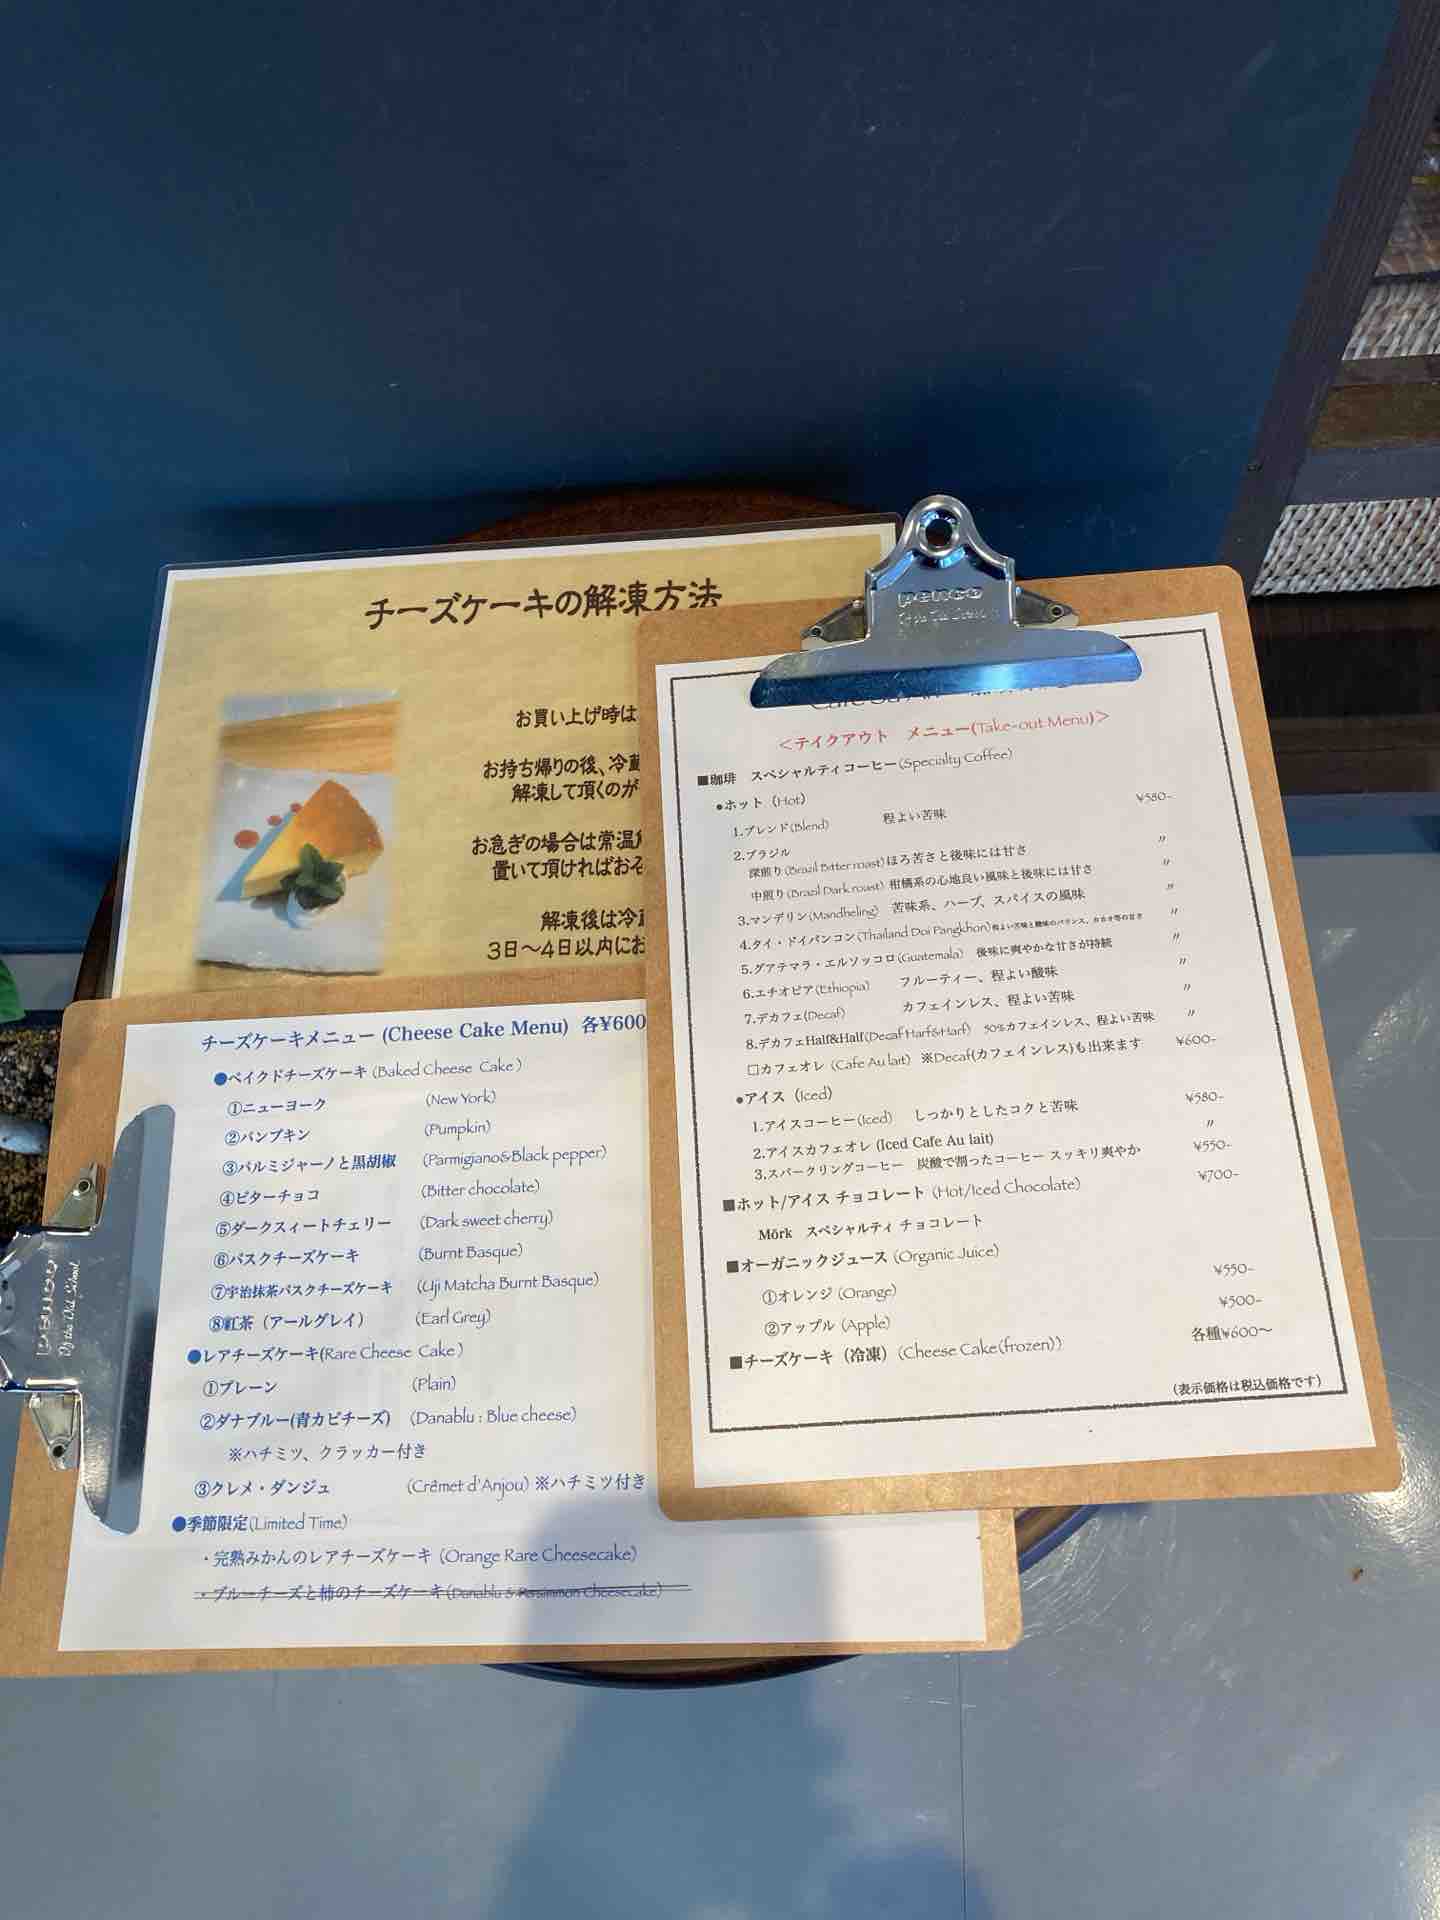 チーズケーキの解凍方法
お買い上げ時は
お持ち帰りの後、冷蔵
解凍して頂くのが
お急ぎの場合は常温
置いて頂ければおそ
解凍後は冷蔵
3日〜4日以内にお
penco
＜テイクアウト　メニュー(Take-out Menu)＞
■珈琲　スペシャルティコーヒー(Specialty Coffee)
●ホット（Hot）
1.ブレンド(Blend)　程よい苦味　¥580-
2.ブラジル
深煎り(Brazil Bitter roast) ほろ苦さと後味には甘さ　〃
中煎り(Brazil Dark roast) 柑橘系の心地良い風味と後味には甘さ　〃
3.マンデリン(Mandheling)　苦味系、ハーブ、スパイスの風味　〃
4.タイ・ドイパンコン(Thailand Doi Pangkhon) 程よい苦味と酸味のバランス、カカオ等の甘さ　〃
5.グアテマラ・エルソッコロ(Guatemala)　後味に爽やかな甘さが持続　〃
6.エチオピア(Ethiopia)　フルーティー、程よい酸味　〃
7.デカフェ(Decaf)　カフェインレス、程よい苦味　〃
8.デカフェHalf&Half(Decaf Harf&Harf)　50%カフェインレス、程よい苦味　〃
□カフェオレ (Cafe Au lait)　※Decaf(カフェインレス)も出来ます　¥600-
●アイス（Iced）
1.アイスコーヒー(Iced)　しっかりとしたコクと苦味　¥580-
2.アイスカフェオレ (Iced Cafe Au lait)　〃
3.スパークリングコーヒー　炭酸で割ったコーヒー スッキリ爽やか　¥550-
■ホット/アイス チョコレート (Hot/Iced Chocolate)　¥700-
Mörk　スペシャルティ チョコレート
■オーガニックジュース (Organic Juice)
①オレンジ (Orange)　¥550-
②アップル (Apple)　¥500-
■チーズケーキ（冷凍）(Cheese Cake(frozen))　各種¥600〜
（表示価格は税込価格です）
チーズケーキメニュー (Cheese Cake Menu)　各¥600
●ベイクドチーズケーキ (Baked Cheese Cake )
①ニューヨーク　(New York)
②パンプキン　(Pumpkin)
③パルミジャーノと黒胡椒　(Parmigiano&Black pepper)
④ビターチョコ　(Bitter chocolate)
⑤ダークスィートチェリー　(Dark sweet cherry)
⑥バスクチーズケーキ　(Burnt Basque)
⑦宇治抹茶バスクチーズケーキ　(Uji Matcha Burnt Basque)
⑧紅茶（アールグレイ）　(Earl Grey)
●レアチーズケーキ(Rare Cheese Cake )
①プレーン　(Plain)
②ダナブルー(青カビチーズ)　(Danablu : Blue cheese)
※ハチミツ、クラッカー付き
③クレメ・ダンジュ　(Crêmet d'Anjou) ※ハチミツ付き
●季節限定(Limited Time)
・完熟みかんのレアチーズケーキ (Orange Rare Cheesecake)
・ブルーチーズと柿のチーズケーキ(Danablu & Persimmon Cheesecake)
penco
By the Old School